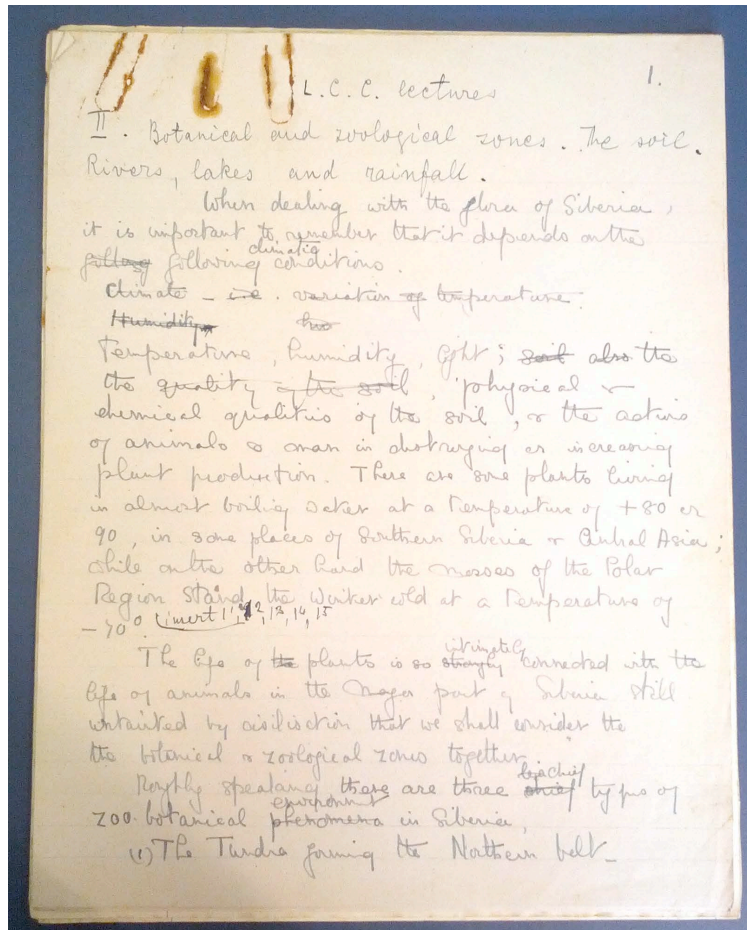 L.C.C. lectures 1.
II. Botanical and zoological zones. The soil.
Rivers, lakes and rainfall.
When dealing with the flora of Siberia,
it is important to remember that it depends on the
climatic
following conditions.
Climate – i.e. variation of temperature.
Humidity
Temperature, humidity, light; soil also the
the quality of the soil, physical &
chemical qualities of the soil, & the actions
of animals & man in destroying or increasing
plant production. There are some plants living
in almost boiling water at a temperature of +80 or
90, in some places of Southern Siberia & Central Asia;
while on the other hand the mosses of the Polar
Region stand the Winter cold at a temperature of
–70° insert 11, 12, 13, 14, 15
intimately
The life of the plants is so strongly connected with the
life of animals in the major part of Siberia still
untainted by civilisation that we shall consider the
the botanical & zoological zones together.
chief
Roughly speaking there are three chief types of
environment
zoo-botanical phenomena in Siberia,
(1) The Tundra forming the Northern belt –